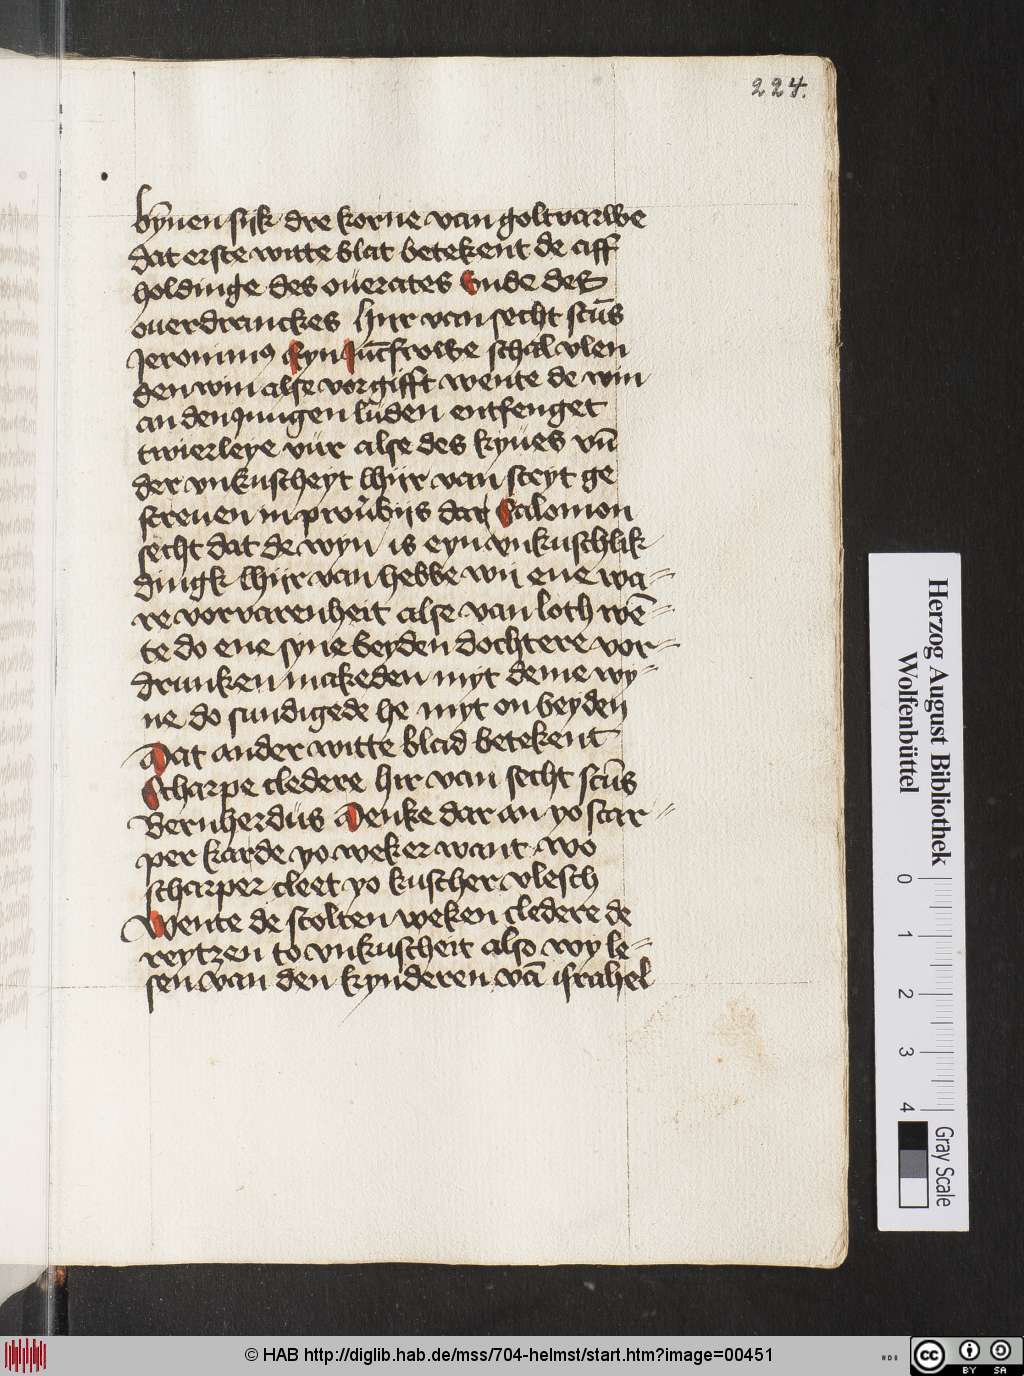 224.
bynnen sijk dre korne van goltvarwe
dat erste witte blat betekent de aff
holdinge des ouerates vnde des
ouerdranckes hiir van secht scūs
Jeronimꝯ Eyn Jūcfrowe schal vlen
den win alse vorgifft wente de win
an den jungen lüden entfenget
twierleye vür alse des kyües vn̄
der vnkuscheyt hiir van steyt ge
screuen in prouerbijs dar Salomon
secht dat de wyn is eyn vnkuschlik
dingk hiir van hebbe wii ene wa=
re vorvarenheit alse van loth wē=
te do ene syne beyden dochtere vor=
drunken makeden myt deme wy=
ne do sundigede he myt on beyden
Dat ander witte blad betekent
Scharpe cledere hir van secht scūs
Bernherdüs Denke dar an yo scar=
per karde yo weker want wo
scharper cleet yo kuscher vlesch
Wente de stolten weken cledere de
reytzen to vnkuscheit also wy le=
sen van den kynderen vā israhel
Herzog August Bibliothek
Wolfenbüttel
0 1 2 3 4
Gray Scale
© HAB http://diglib.hab.de/mss/704-helmst/start.htm?image=00451
cc BY SA